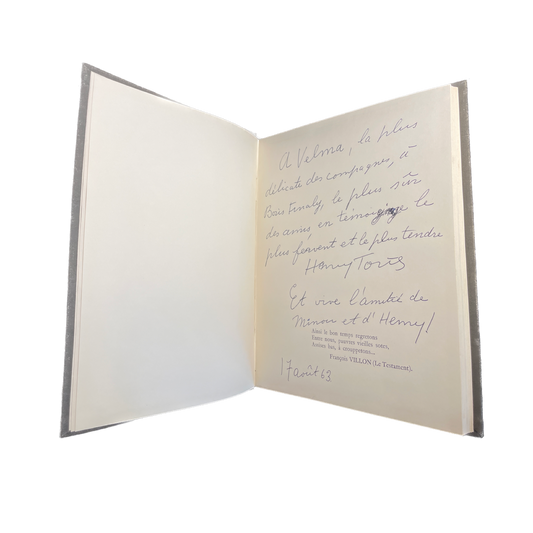 A Velma, la plus
délicate des compagnes, à
le plus sûr
des amis, en témoignage le
plus fervent et le plus tendre
Henry Torrès
Et vive l'amitié de
Minou et d'Henry!
Ainsi le bon temps regretons
Entre nous, pauvres vieilles sotes,
Assises bas, à crouppetons...
François VILLON (Le Testament).
17 août 63